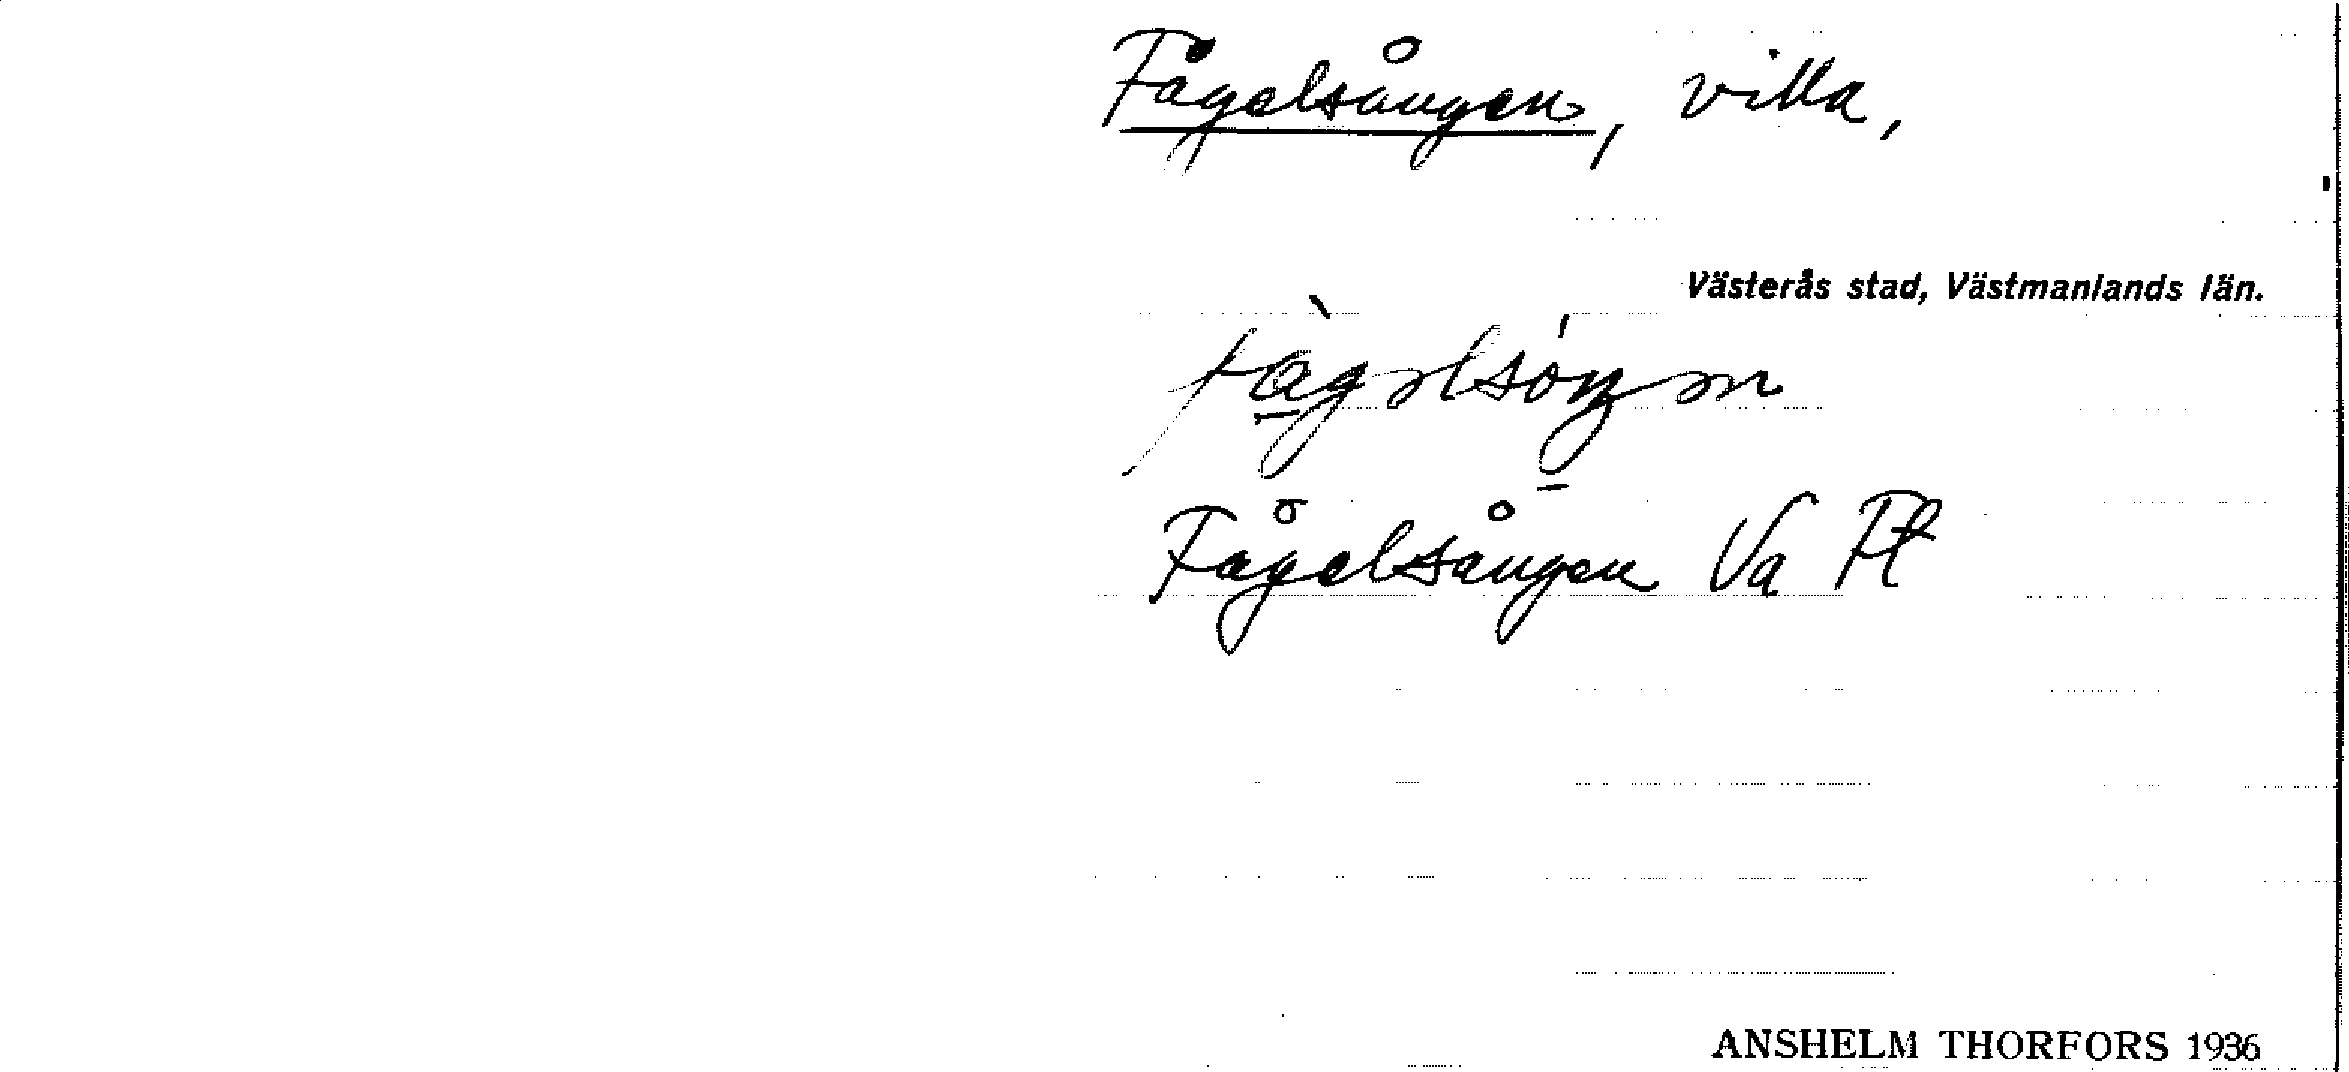 Fågelsången, villa,
Västerås stad, Västmanlands län.
Fågelsången Va Fl
ANSHELM THORFORS 1936